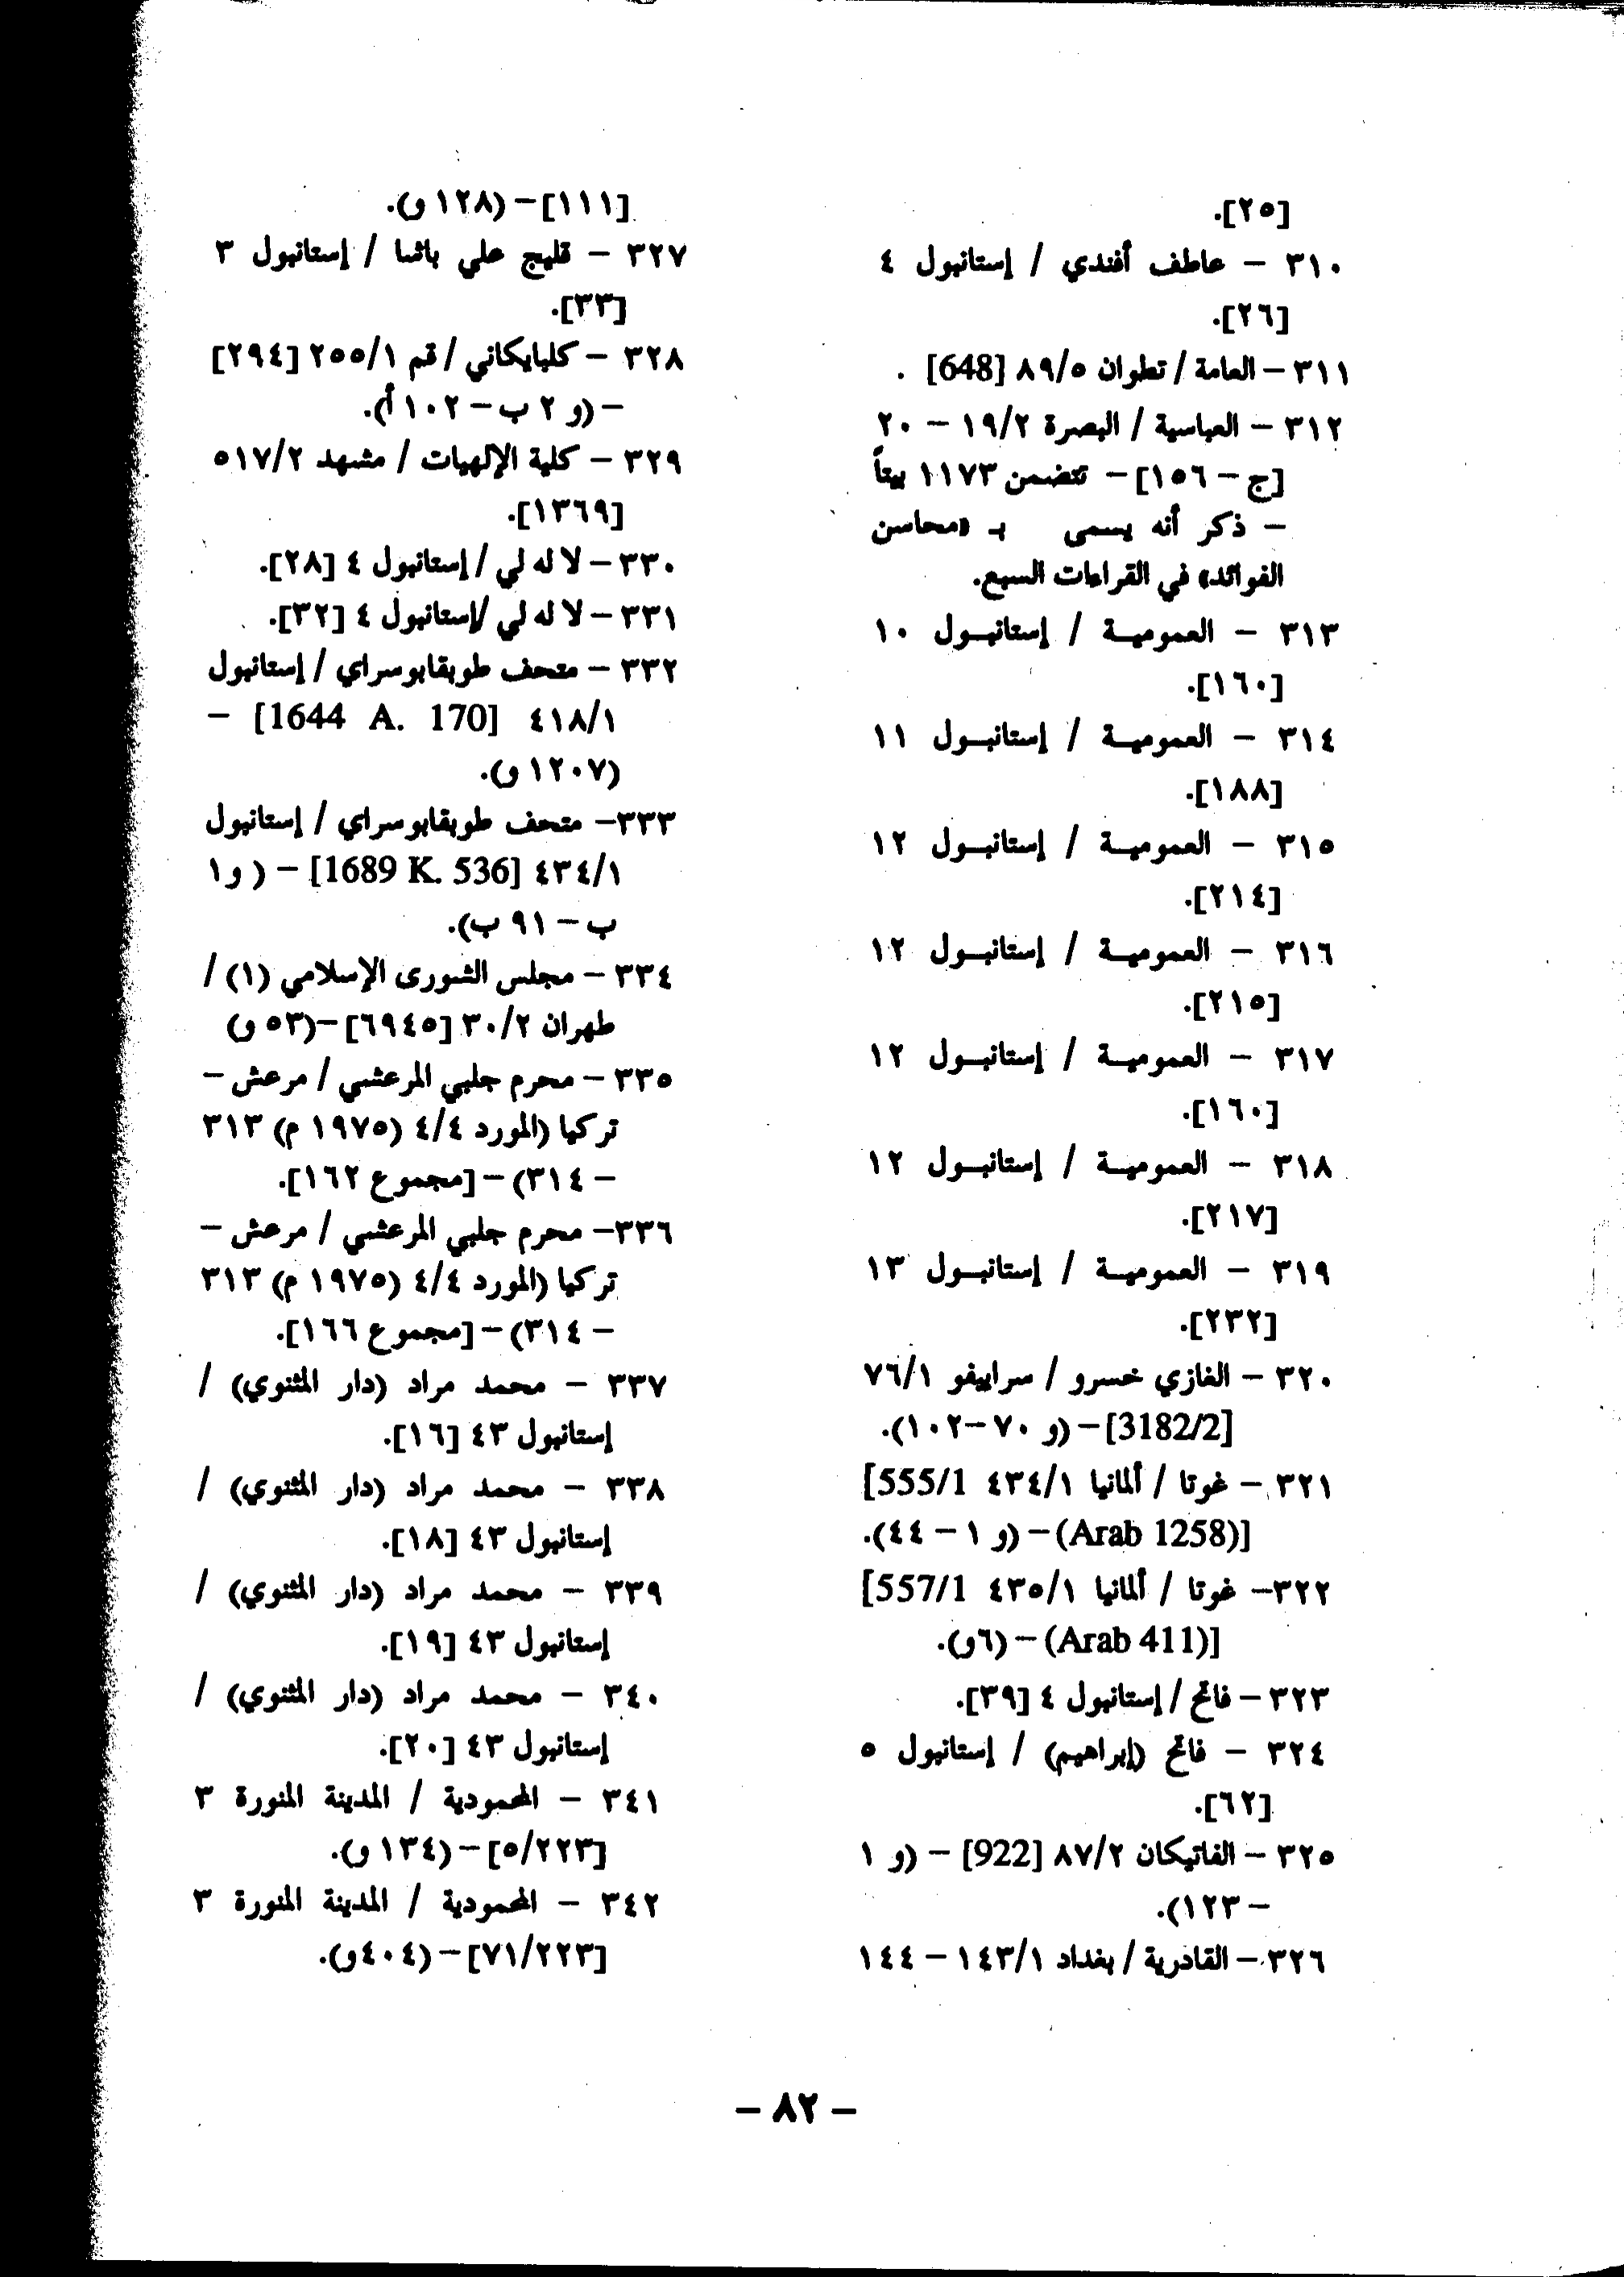 [٢٥].
٣١٠ – عاطف أفندي / إستانبول ٤
[٢٦].
٣١١ – العامة / تطوان ٨٩/٥ [648] .
٣١٢ – العباسية / البصرة ١٩/٢ – ٢٠
[ج – ١٥٦] – تتضمن ١١٧٣ بيتاً
– ذكر أنه يسمى بـ «محاسن
الفوائد» في القراءات السبع.
٣١٣ – العمومية / إستانبول ١٠
[١٦٠].
٣١٤ – العمومية / إستانبول ١١
[١٨٨].
٣١٥ – العمومية / إستانبول ١٢
[٢١٤].
٣١٦ – العمومية / إستانبول ١٢
[٢١٥].
٣١٧ – العمومية / إستانبول ١٢
[١٦٠].
٣١٨ – العمومية / إستانبول ١٢
[٢١٧].
٣١٩ – العمومية / إستانبول ١٣
[٢٣٢].
٣٢٠ – الغازي خسرو / سراييفو ٧٦/١
[3182/2] – (و ٧٠ – ١٠٢).
٣٢١ – غوتا / ألمانيا ٤٣٤/١ [555/1
(Arab 1258)] – (و ١ – ٤٤).
٣٢٢ – غوتا / ألمانيا ٤٣٥/١ [557/1
(Arab 411)] – (٦و).
٣٢٣ – فاتح / إستانبول ٤ [٣٩].
٣٢٤ – فاتح (إبراهيم) / إستانبول ٥
[٦٢].
٣٢٥ – الفاتيكان ٨٧/٢ [922] – (و ١
– ١٢٣).
٣٢٦ – القادرية / بغداد ١٤٣/١ – ١٤٤
[١١١] – (١٢٨ و).
٣٢٧ – قليج علي باشا / إستانبول ٣
[٣٣].
٣٢٨ – كلبايكاني / قم ٢٥٥/١ [٢٩٤]
– (و ٢ ب – ١٠٢ أ).
٣٢٩ – كلية الإلهيات / مشهد ٥١٧/٢
[١٣٦٩].
٣٣٠ – لا له لي / إستانبول ٤ [٢٨].
٣٣١ – لا له لي / إستانبول ٤ [٣٢].
٣٣٢ – متحف طوبقابوسراي / إستانبول
٤١٨/١ [1644 A. 170] –
(١٢٠٧ و).
٣٣٣ – متحف طوبقابوسراي / إستانبول
٤٣٤/١ [1689 K. 536] – ( و١
ب – ٩١ ب).
٣٣٤ – مجلس الشورى الإسلامي (١) /
طهران ٣٠/٢ [٦٩٤٥] – (٥٣ و)
٣٣٥ – محرم جلبي المرعشي / مرعش –
تركيا (المورد ٤/٤ (١٩٧٥ م) ٣١٣
– ٣١٤) – [مجموع ١٦٢].
٣٣٦ – محرم جلبي المرعشي / مرعش –
تركيا (المورد ٤/٤ (١٩٧٥ م) ٣١٣
– ٣١٤) – [مجموع ١٦٦].
٣٣٧ – محمد مراد (دار المثنوي) /
إستانبول ٤٣ [١٦].
٣٣٨ – محمد مراد (دار المثنوي) /
إستانبول ٤٣ [١٨].
٣٣٩ – محمد مراد (دار المثنوي) /
إستانبول ٤٣ [١٩].
٣٤٠ – محمد مراد (دار المثنوي) /
إستانبول ٤٣ [٢٠].
٣٤١ – المحمودية / المدينة المنورة ٣
[٥/٢٢٣] – (١٣٤ و).
٣٤٢ – المحمودية / المدينة المنورة ٣
[٧١/٢٢٣] – (٤٠٤و).
– ٨٢ –